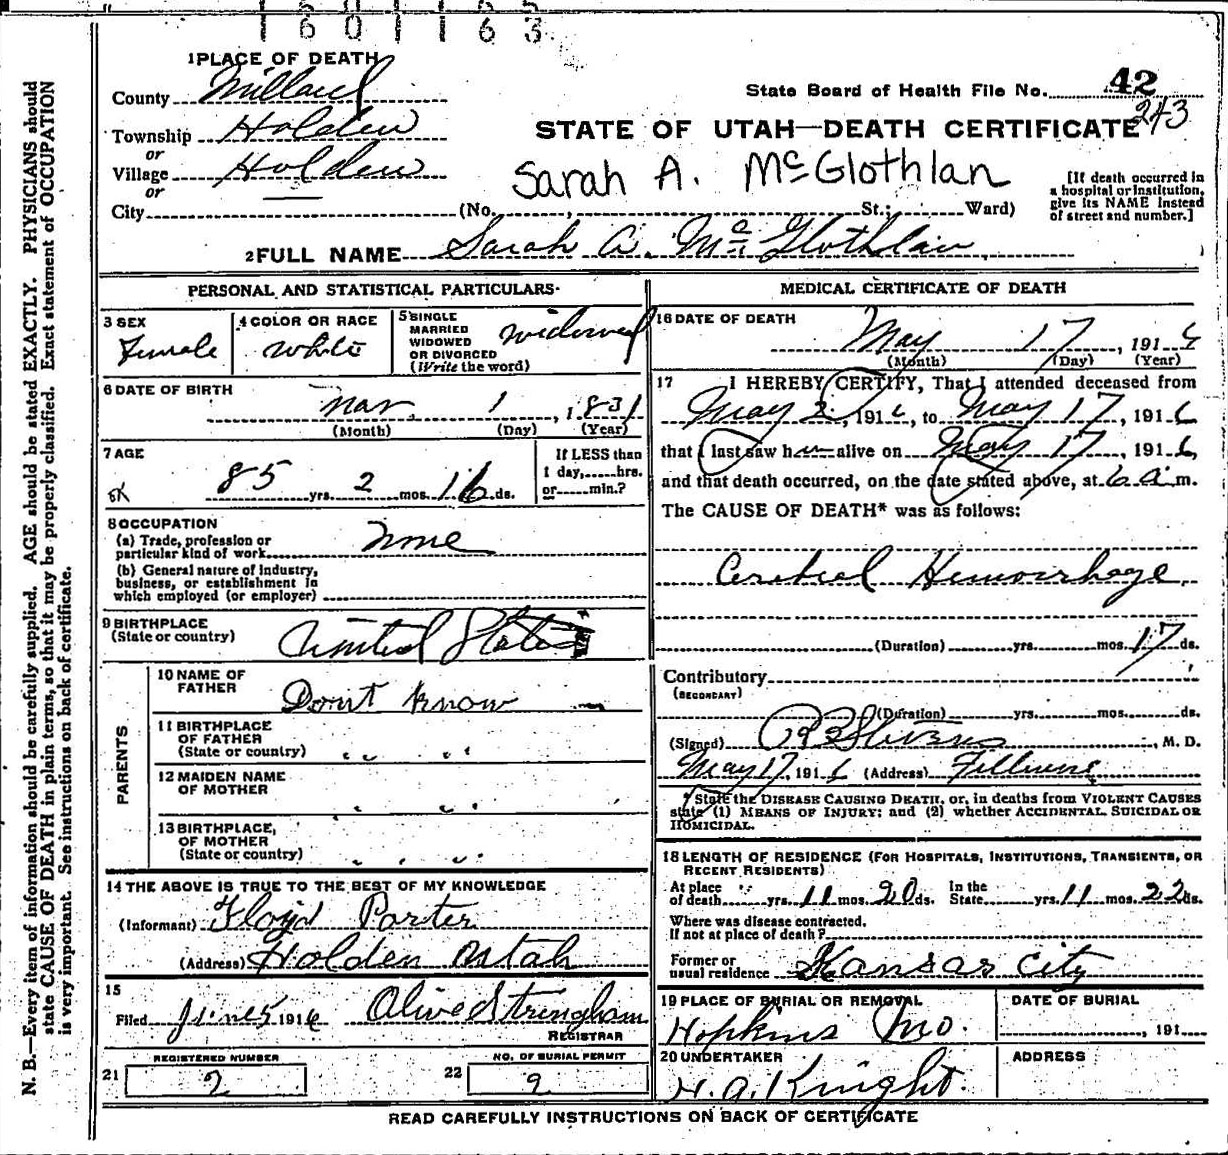 160163
1 PLACE OF DEATH
County Millard
State Board of Health File No. 42
243
Township Holden
STATE OF UTAH—DEATH CERTIFICATE
or
Village Holden
or
Sarah A. McGlothlan
[If death occurred in a hospital or institution, give its NAME instead of street and number.]
City — (No. , St.; Ward)
2 FULL NAME Sarah A. McGlothlan
PERSONAL AND STATISTICAL PARTICULARS
3 SEX Female
4 COLOR OR RACE White
5 SINGLE MARRIED WIDOWED OR DIVORCED (Write the word) widowed
6 DATE OF BIRTH
Mar. 1, 1831
(Month) (Day) (Year)
7 AGE
85 yrs. 2 mos. 16 ds.
If LESS than 1 day, hrs. or min.?
8 OCCUPATION
(a) Trade, profession or particular kind of work None
(b) General nature of industry, business, or establishment in which employed (or employer)
9 BIRTHPLACE (State or country) United States
PARENTS
10 NAME OF FATHER Dont know
11 BIRTHPLACE OF FATHER (State or country) " "
12 MAIDEN NAME OF MOTHER " "
13 BIRTHPLACE OF MOTHER (State or country) " "
14 THE ABOVE IS TRUE TO THE BEST OF MY KNOWLEDGE
(Informant) Floyd Porter
(Address) Holden Utah
15
Filed June 5 1916 Olive Stringham
REGISTRAR
REGISTERED NUMBER
21 2
NO. OF BURIAL PERMIT
22 2
MEDICAL CERTIFICATE OF DEATH
16 DATE OF DEATH
May 17, 1916
(Month) (Day) (Year)
17 I HEREBY CERTIFY, That I attended deceased from
May 2, 1916, to May 17, 1916
that I last saw her alive on May 17, 1916,
and that death occurred, on the date stated above, at 6 a.m.
The CAUSE OF DEATH* was as follows:
Cerebral Hemorrhage
(Duration) yrs. mos. 17 ds.
Contributory
(SECONDARY)
(Duration) yrs. mos. ds.
(Signed) Stevens, M. D.
May 17, 1916 (Address) Fillmore
* State the DISEASE CAUSING DEATH, or, in deaths from VIOLENT CAUSES
state (1) MEANS OF INJURY; and (2) whether ACCIDENTAL, SUICIDAL OR
HOMICIDAL.
18 LENGTH OF RESIDENCE (FOR HOSPITALS, INSTITUTIONS, TRANSIENTS, OR
RECENT RESIDENTS)
At place of death yrs. 11 mos. 20 ds. In the State yrs. 11 mos. 22 ds.
Where was disease contracted,
If not at place of death?
Former or usual residence Kansas City
19 PLACE OF BURIAL OR REMOVAL
Hopkins Mo.
DATE OF BURIAL
, 191
20 UNDERTAKER
H. A. Knight.
ADDRESS
READ CAREFULLY INSTRUCTIONS ON BACK OF CERTIFICATE
N. B.—Every item of information should be carefully supplied. AGE should be stated EXACTLY. PHYSICIANS should
state CAUSE OF DEATH in plain terms, so that it may be properly classified. Exact statement of OCCUPATION
is very important. See instructions on back of certificate.